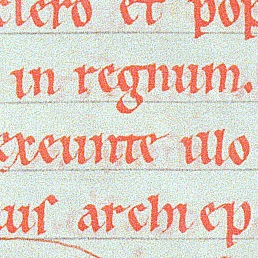 clero et pop
in regnum.
exeunte illo
uis archiep